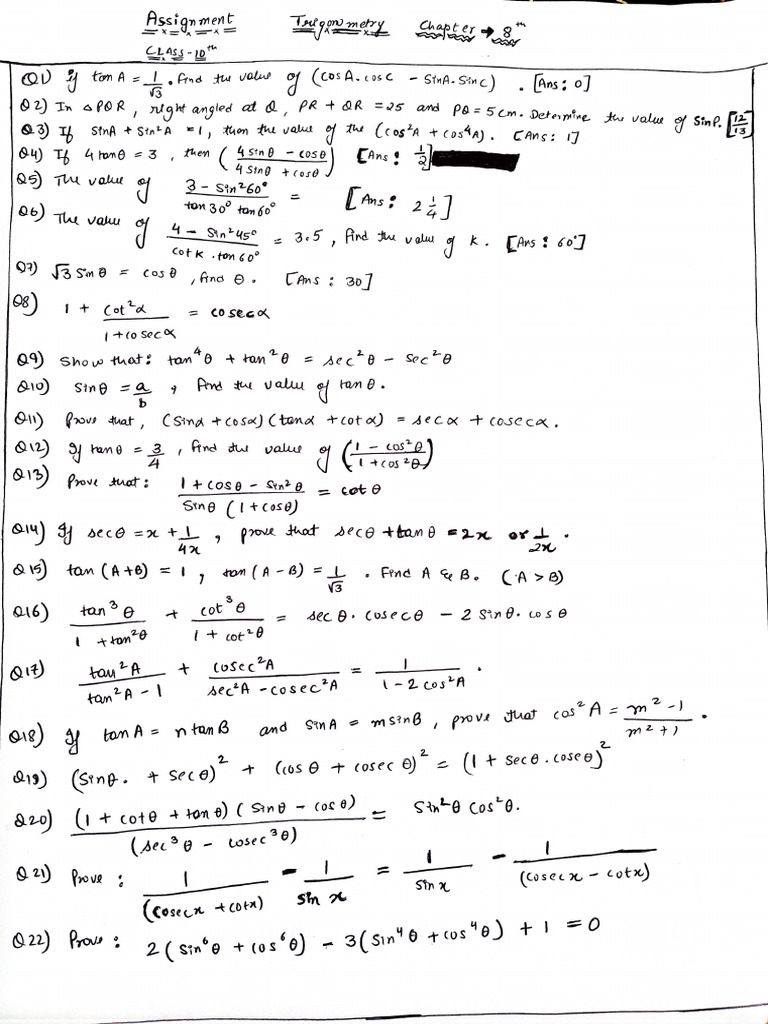 Assignment Trigonometry Chapter → 8th
CLASS-10th
Q1) If tan A = 1/√3. find the value of (cosA.cosC - SinA.SinC). [Ans: 0]
Q2) In △PQR, right angled at Q, PR + QR = 25 and PQ = 5 cm. Determine the value of SinP. [12/13]
Q3) If SinA + Sin²A = 1, then the value of the (cos²A + cos⁴A). [Ans: 1]
Q4) If 4 tanθ = 3, then (4 sinθ - cosθ / 4 sinθ + cosθ) [Ans: 1/2]
Q5) The value of 3 - Sin²60° / tan30° tan60° = [Ans: 2 1/4]
Q6) The value of 4 - Sin²45° / cotK . tan60° = 3.5, find the value of K. [Ans: 60°]
Q7) √3 Sinθ = cosθ, find θ. [Ans: 30]
Q8) 1 + cot²α / 1 + cosecα = cosecα
Q9) Show that: tan⁴θ + tan²θ = sec²θ - sec²θ
Q10) sinθ = a/b, find the value of tanθ.
Q11) Prove that, (Sinα + cosα)(tanα + cotα) = secα + cosecα.
Q12) If tanθ = 3/4, find the value of (1 - cos²θ / 1 + cos²θ)
Q13) Prove that: 1 + cosθ - sin²θ / Sinθ (1 + cosθ) = cotθ
Q14) If secθ = x + 1/4x, prove that secθ + tanθ = 2x or 1/2x.
Q15) tan(A+B) = 1, tan(A-B) = 1/√3. Find A & B. (A > B)
Q16) tan³θ / 1 + tan²θ + cot³θ / 1 + cot²θ = secθ.cosecθ - 2 Sinθ.cosθ
Q17) tan²A / tan²A - 1 + cosec²A / sec²A - cosec²A = 1 / 1 - 2cos²A.
Q18) If tanA = n tanB and sinA = m sinB, prove that cos²A = m² - 1 / m² + 1.
Q19) (Sinθ. + secθ)² + (cosθ + cosecθ)² = (1 + secθ.cosecθ)²
Q20) (1 + cotθ + tanθ)(Sinθ - cosθ) / (sec³θ - cosec³θ) = Sin²θ cos²θ.
Q21) Prove: 1 / (cosecx + cotx) - 1 / sin x = 1 / sin x - 1 / (cosecx - cotx)
Q22) Prove: 2(sin⁶θ + cos⁶θ) - 3(sin⁴θ + cos⁴θ) + 1 = 0